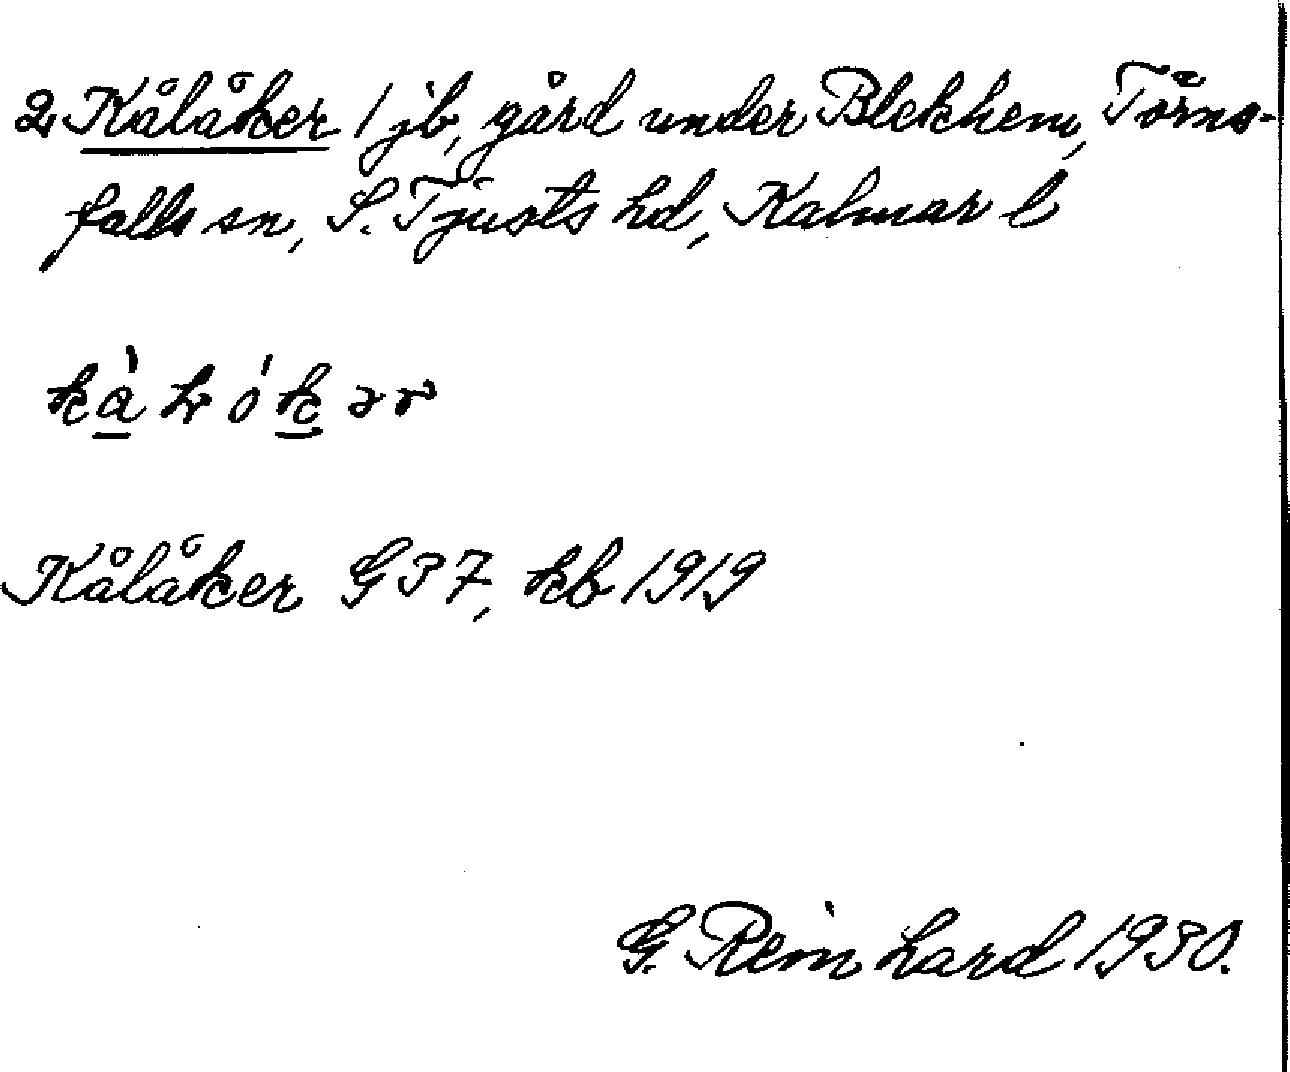 2 Kålåker 1 jb, gård under Blekhem, Törns-
falls sn, S. Tjusts hd, Kalmar l
Kålåker G 37, kb 1919
G. Reinhard 1930.